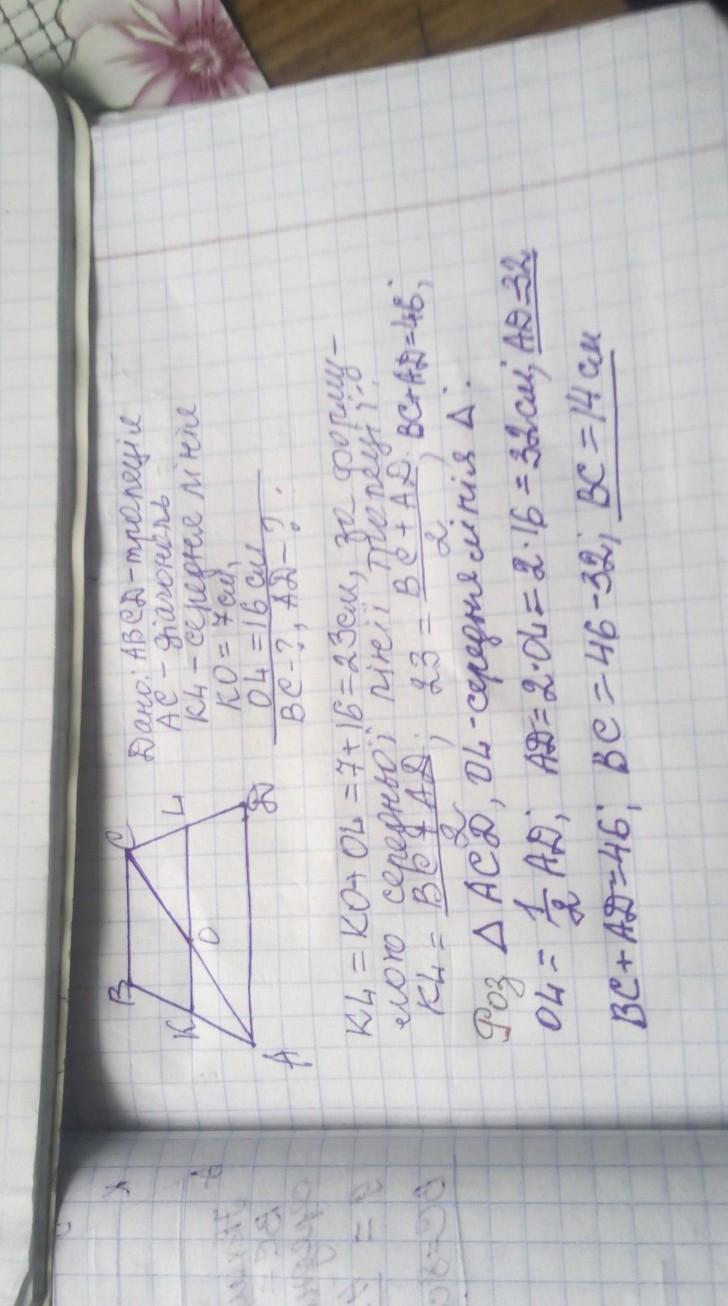 B
C
K
O
L
A
D
Дано: ABCD-трапеція
AC - діагональ
KL - середня лінія
KO = 7см,
OL = 16 см
BC-?, AD-?.
KL = KO + OL = 7 + 16 = 23 см, за форму-
лою середньої лінії трапеції:
KL = BC + AD / 2 ; 23 = BC + AD / 2 ; BC + AD = 46;
Роз ∆ ACD, OL - середня лінія ∆:
OL = 1/2 AD; AD = 2·OL = 2·16 = 32 см; AD = 32
BC + AD = 46; BC = 46 - 32; BC = 14 см